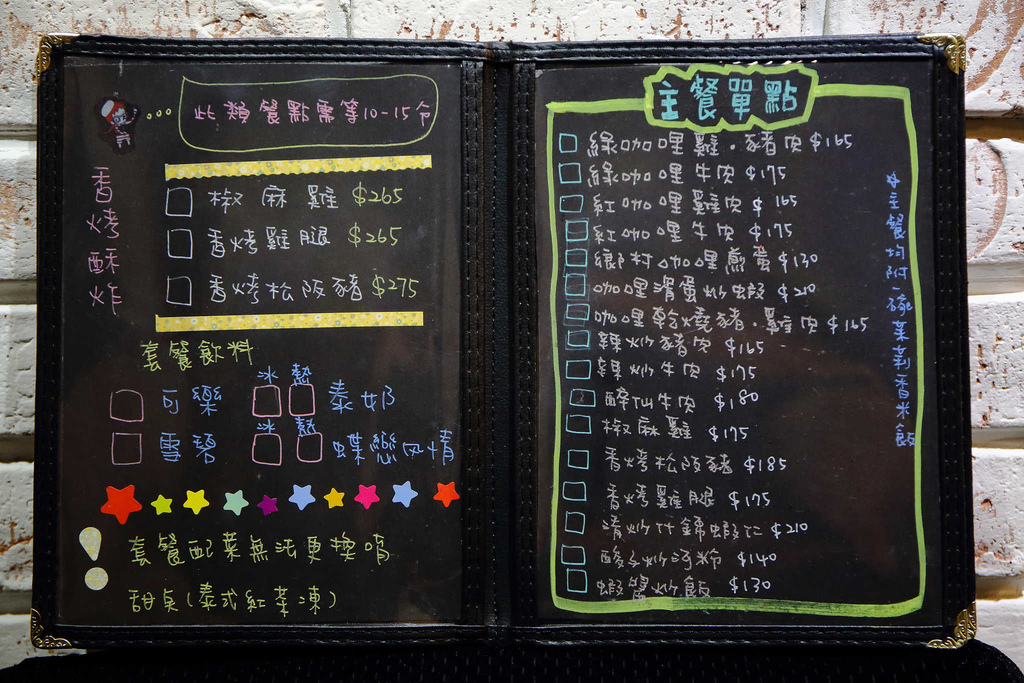 此類餐點需等10-15分
香烤酥炸
椒麻雞 $265
香烤雞腿 $265
香烤松阪豬 $275
套餐飲料
冰 熱
可樂 泰奶
冰 熱
雪碧 蝶戀风情
套餐配菜無法更換唷
甜点(泰式紅茶凍)
主餐單點
綠咖哩雞.豬肉 $165
綠咖哩牛肉 $175
紅咖哩雞肉 $165
紅咖哩牛肉 $175
鄉村咖哩煎蛋 $130
咖哩滑蛋炒蝦 $210
咖哩乾燒豬.雞肉 $165
辣炒豬肉 $165
辣炒牛肉 $175
醉仙牛肉 $180
椒麻雞 $175
香烤松阪豬 $185
香烤雞腿 $175
清炒什錦蝦仁 $210
酸子炒河粉 $140
蝦蟹炒飯 $130
主餐均附一碗茉莉香米飯